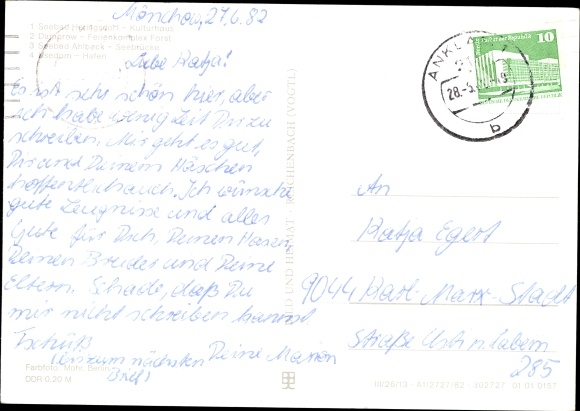 Mönchow, 27.6.82
1 Seebad Heringsdorf - Kulturhaus
2 Dargerow - Ferienkomplex Forst
3 Seebad Ahlbeck - Seebrücke
4 Usedom - Hafen
Liebe Katja!
Es ist sehr schön hier, aber
ich habe wenig Zeit Dir zu
schreiben. Mir geht es gut,
Dir und Deinem Häschen
hoffentlich auch. Ich wünsche
gute Zeugnisse und alles
Gute für Dich, Deinen Hasen,
Deinen Bruder und Deine
Eltern. Schade, daß Du
mir nicht schreiben kannst
Tschüß
(bis zum nächsten Brief)
Deine Marion
Farbfoto: Mohr, Berlin
DDR 0,20 M
BILD UND HEIMAT · REICHENBACH (VOGTL)
10
ANKLAM 1
28.-6.
b
An
Katja Egert
9044 Karl-Marx-Stadt
Straße Usti n. Labem
285
III/26/13 A1/2727/82 302727 01 01 0157